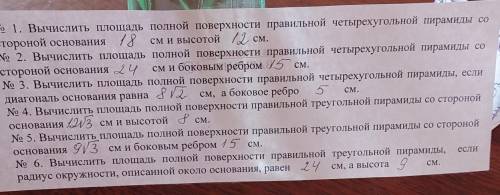 № 1. Вычислить площадь полной поверхности правильной четырехугольной пирамиды со
стороной основания 18 см и высотой 12 см.
№ 2. Вычислить площадь полной поверхности правильной четырехугольной пирамиды со
стороной основания 24 см и боковым ребром 15 см.
№ 3. Вычислить площадь полной поверхности правильной четырехугольной пирамиды, если
диагональ основания равна 8√2 см, а боковое ребро 5 см.
№ 4. Вычислить площадь полной поверхности правильной треугольной пирамиды со стороной
основания 12√3 см и высотой 8 см.
№ 5. Вычислить площадь полной поверхности правильной треугольной пирамиды со стороной
основания 9√3 см и боковым ребром 15 см.
№ 6. Вычислить площадь полной поверхности правильной треугольной пирамиды, если
радиус окружности, описанной около основания, равен 24 см, а высота 9 см.